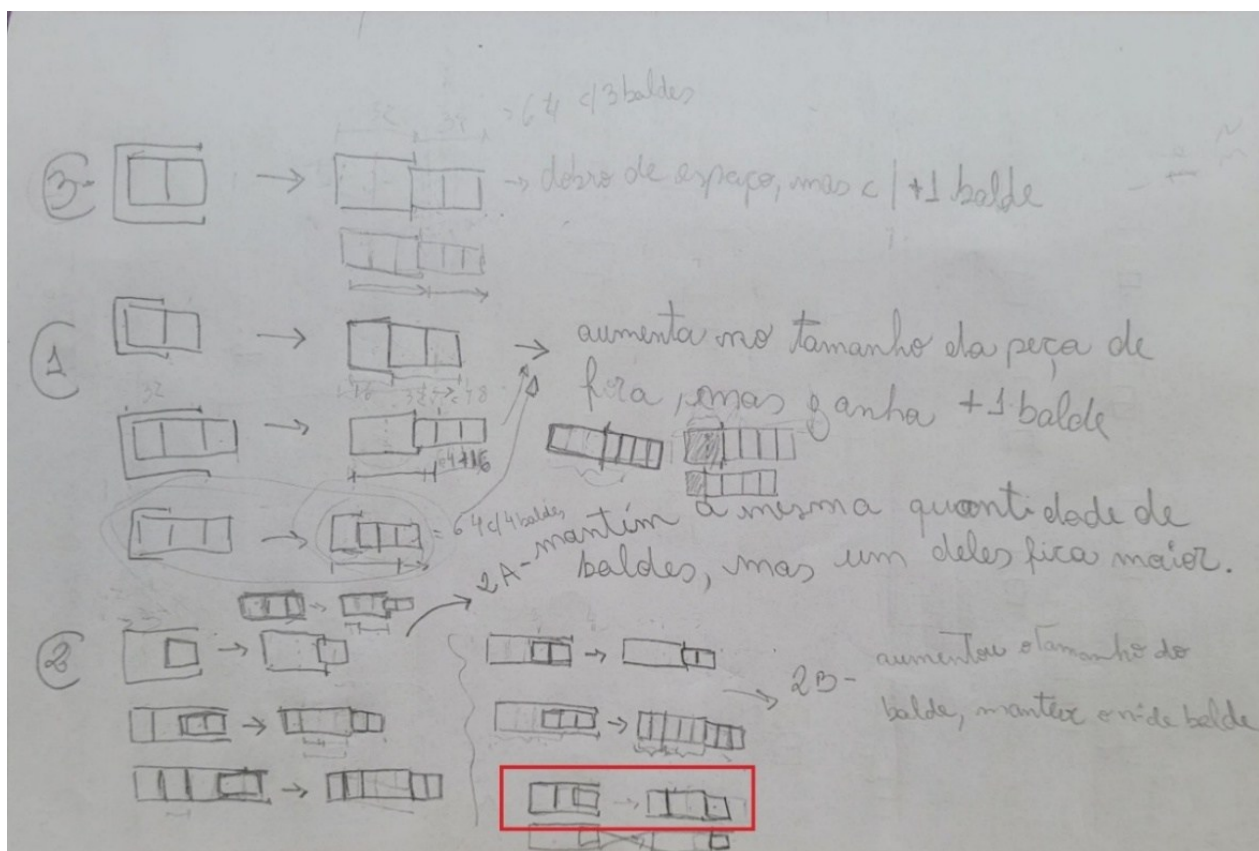 64 c/3 baldes
3-
→ dobro de espaço, mas c/ +1 balde
1
→ aumenta no tamanho da peça de
fora, mas ganha +1 balde
32
16
64+16
= 64 c/4 baldes
2A- mantém a mesma quantidade de
baldes, mas um deles fica maior.
2
2B- aumentou o tamanho do
balde, manteve o nº de balde